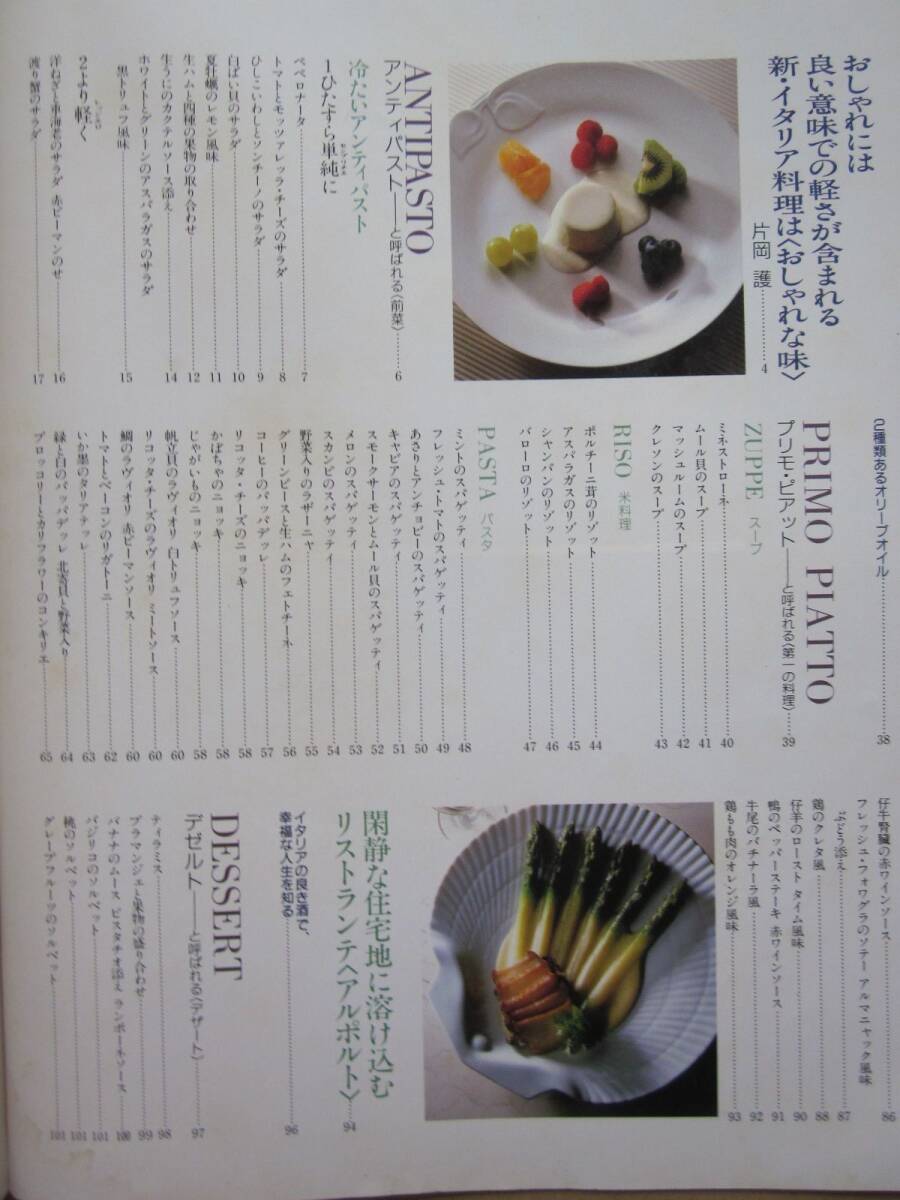 おしゃれには
良い意味での軽さが含まれる
新・イタリア料理は〈おしゃれな味〉
片岡 護……4
ANTIPASTO
アンティパスト——と呼ばれる〈前菜〉……6
冷たいアンティパスト
1ひたすら単純に
ペペロナータ……7
トマトとモッツァレッラ・チーズのサラダ……8
ひしこいわしとソンチーノのサラダ……9
白ばい貝のサラダ……10
夏牡蠣のレモン風味……11
生ハムと四種の果物の取り合わせ……12
生うにのカクテルソース添え……14
ホワイトとグリーンのアスパラガスのサラダ
黒トリュフ風味……15
2より軽く
洋ねぎと車海老のサラダ 赤ピーマンのせ……16
渡り蟹のサラダ……17
2種類あるオリーブオイル……38
PRIMO PIATTO
プリモ・ピアット——と呼ばれる〈第一の料理〉……39
ZUPPE スープ
ミネストローネ……40
ムール貝のスープ……41
マッシュルームのスープ……42
クレソンのスープ……43
RISO 米料理
ポルチーニ茸のリゾット……44
アスパラガスのリゾット……45
シャンパンのリゾット……46
バローロのリゾット……47
PASTA パスタ
ミントのスパゲッティ……48
フレッシュ・トマトのスパゲッティ……49
あさりとアンチョビーのスパゲッティ……50
キャビアのスパゲッティ……51
スモークサーモンとムール貝のスパゲッティ……52
メロンのスパゲッティ……53
スカンピのスパゲッティ……54
野菜入りのラザーニャ……55
グリーンピースと生ハムのフェトチーネ……56
コーヒーのパッパデッレ……57
リコッタ・チーズのニョッキ……58
かぼちゃのニョッキ……58
じゃがいものニョッキ……58
帆立貝のラヴィオリ 白トリュフソース……60
リコッタ・チーズのラヴィオリ ミートソース……60
鯛のラヴィオリ 赤ピーマンソース……60
トマトとベーコンのリガトーニ……62
いか墨のタリアテッレ……63
緑と白のパッパデッレ 北寄貝と野菜入り……64
ブロッコリーとカリフラワーのコンキリエ……65
仔牛腎臓の赤ワインソース……86
フレッシュ・フォワグラのソテー アルマニャック風味
ぶどう添え……87
鶏のクレタ風……88
仔羊のロースト タイム風味……90
鴨のペッパーステーキ 赤ワインソース……91
牛尾のバチナーラ風……92
鶏もも肉のオレンジ風味……93
閑静な住宅地に溶け込む
リストランテ〈アルポルト〉……94
イタリアの良き酒で、
幸福な人生を知る……96
DESSERT
デゼルト——と呼ばれる〈デザート〉……97
ティラミス……98
ブラマンジェと果物の盛り合わせ……99
バナナのムース ピスタチオ添え ランポーネソース……100
バジリコのソルベット……101
桃のソルベット……101
グレープフルーツのソルベット……101